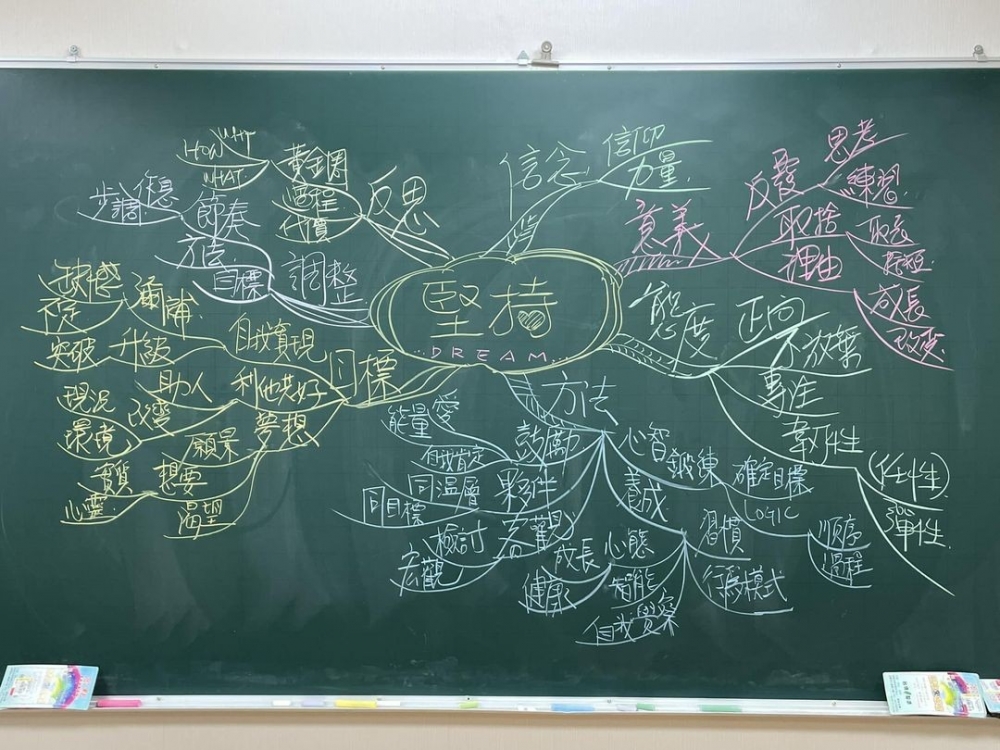 堅持
DREAM
信念
信仰
力量
意義
反覆
思考
練習
取捨
理由
成長
改變
態度
正向
不放棄
專注
韌性
(任性)
彈性
方法
心智
鍛鍊
確定目標
LOGIC
順序
過程
養成
習慣
行為模式
心態
成長
健康
智能
自我覺察
鼓勵
愛
能量
自我肯定
夥伴
同溫層
同目標
客觀
檢討
宏觀
目標
自我實現
彌補
升級
突破
利他共好
助人
改變
現況
環境
夢想
願景
想要
實質
心靈
渴望
調整
節奏
步調
方法
目標
反思
黃金圈
WHY
HOW
WHAT
過程
代價